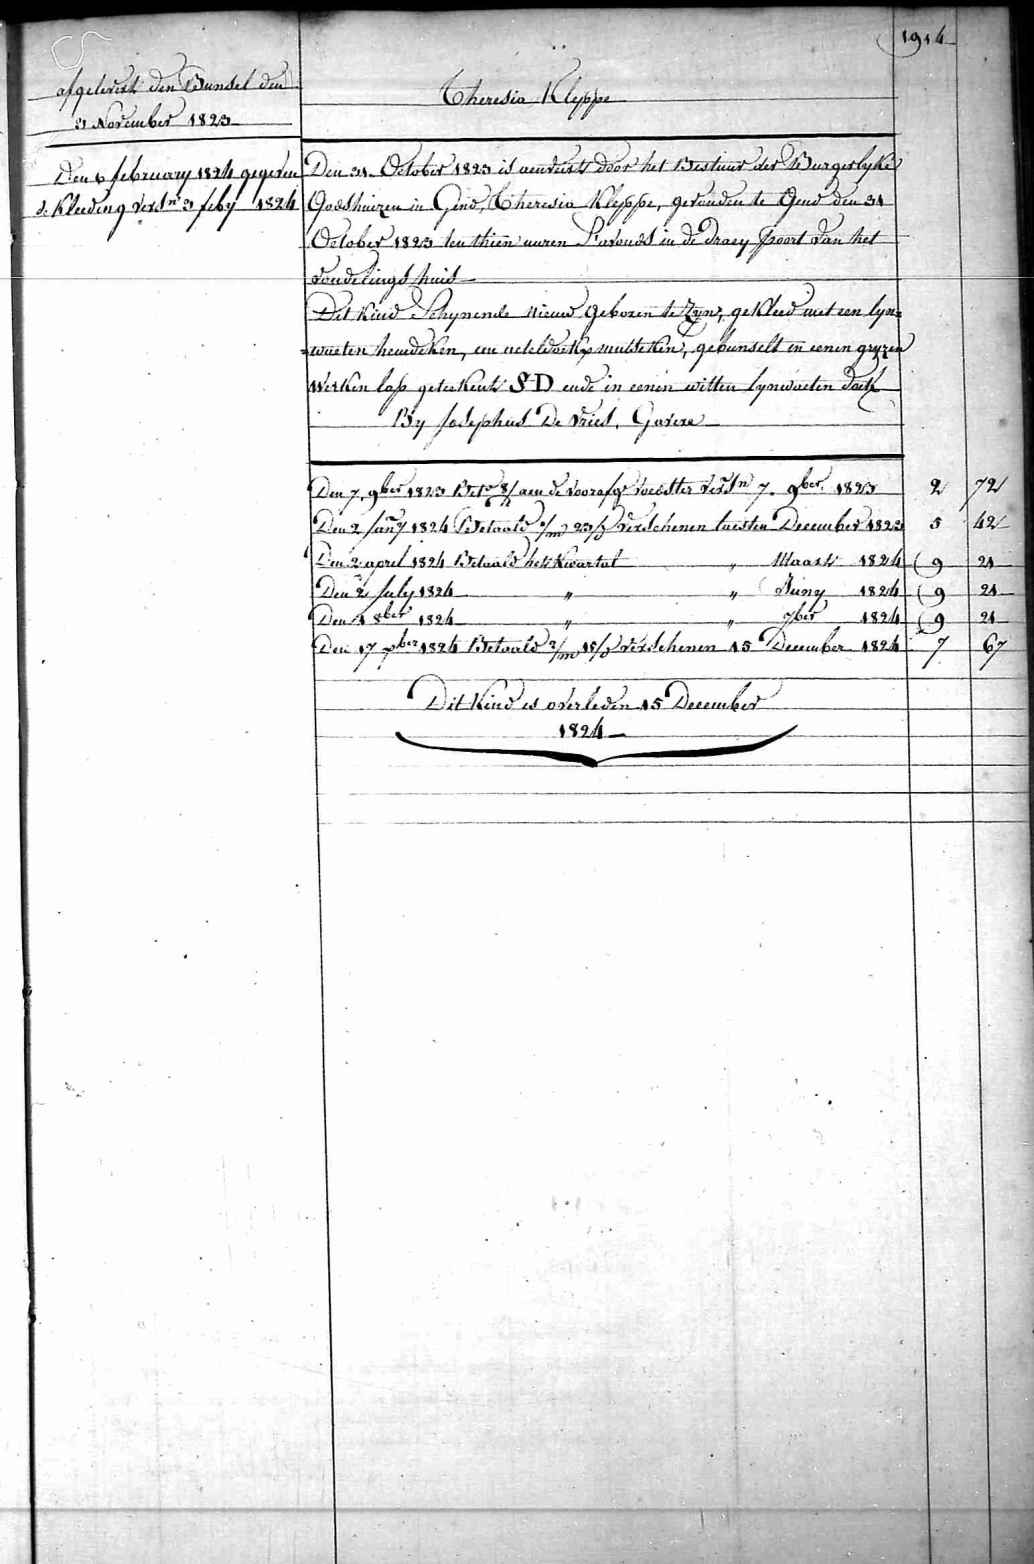 1914
afgelevert den Bunsel den
3 November 1823
Theresia Kleppe
Den 6 february 1824 gegeven
de Kleeding versn 3 feby 1824
Den 31 October 1823 is aenveirt door het Bestuur der Burgerlyke
Godshuizen in Gend, Theresia Kleppe, gevonden te Gend den 31
October 1823 ten thien uuren S'avonds in de Draey poort van het
vondelings huis
Dit Kind Schynende nieuw geboren te Zyn, gekleed met een lyn=
=waeten hemdeken, een neteldoek mutseken, gebunselt in eenen gryzen
Werken lap geteekent SD ende in eenen witten lynwaeten doek
By Josephus De Vriese, Gavere
Den 7 9ber 1823 aen de voorafge voedster versn 7 9ber 1823 2 72
Den 2 Jany 1824 Betaald 1/m 23/d verschenen laesten December 1823 5 42
Den 2 april 1824 Betaald het Kwartal " Maart 1824 9 21
Den 2 July 1824 " " Juny 1824 9 21
Den 1 8ber 1824 " " 7ber 1824 9 21
Den 17 xber 1824 Betaald 2/m 15/d verschenen 15 December 1824 7 67
Dit Kind is overleden 15 December
1824